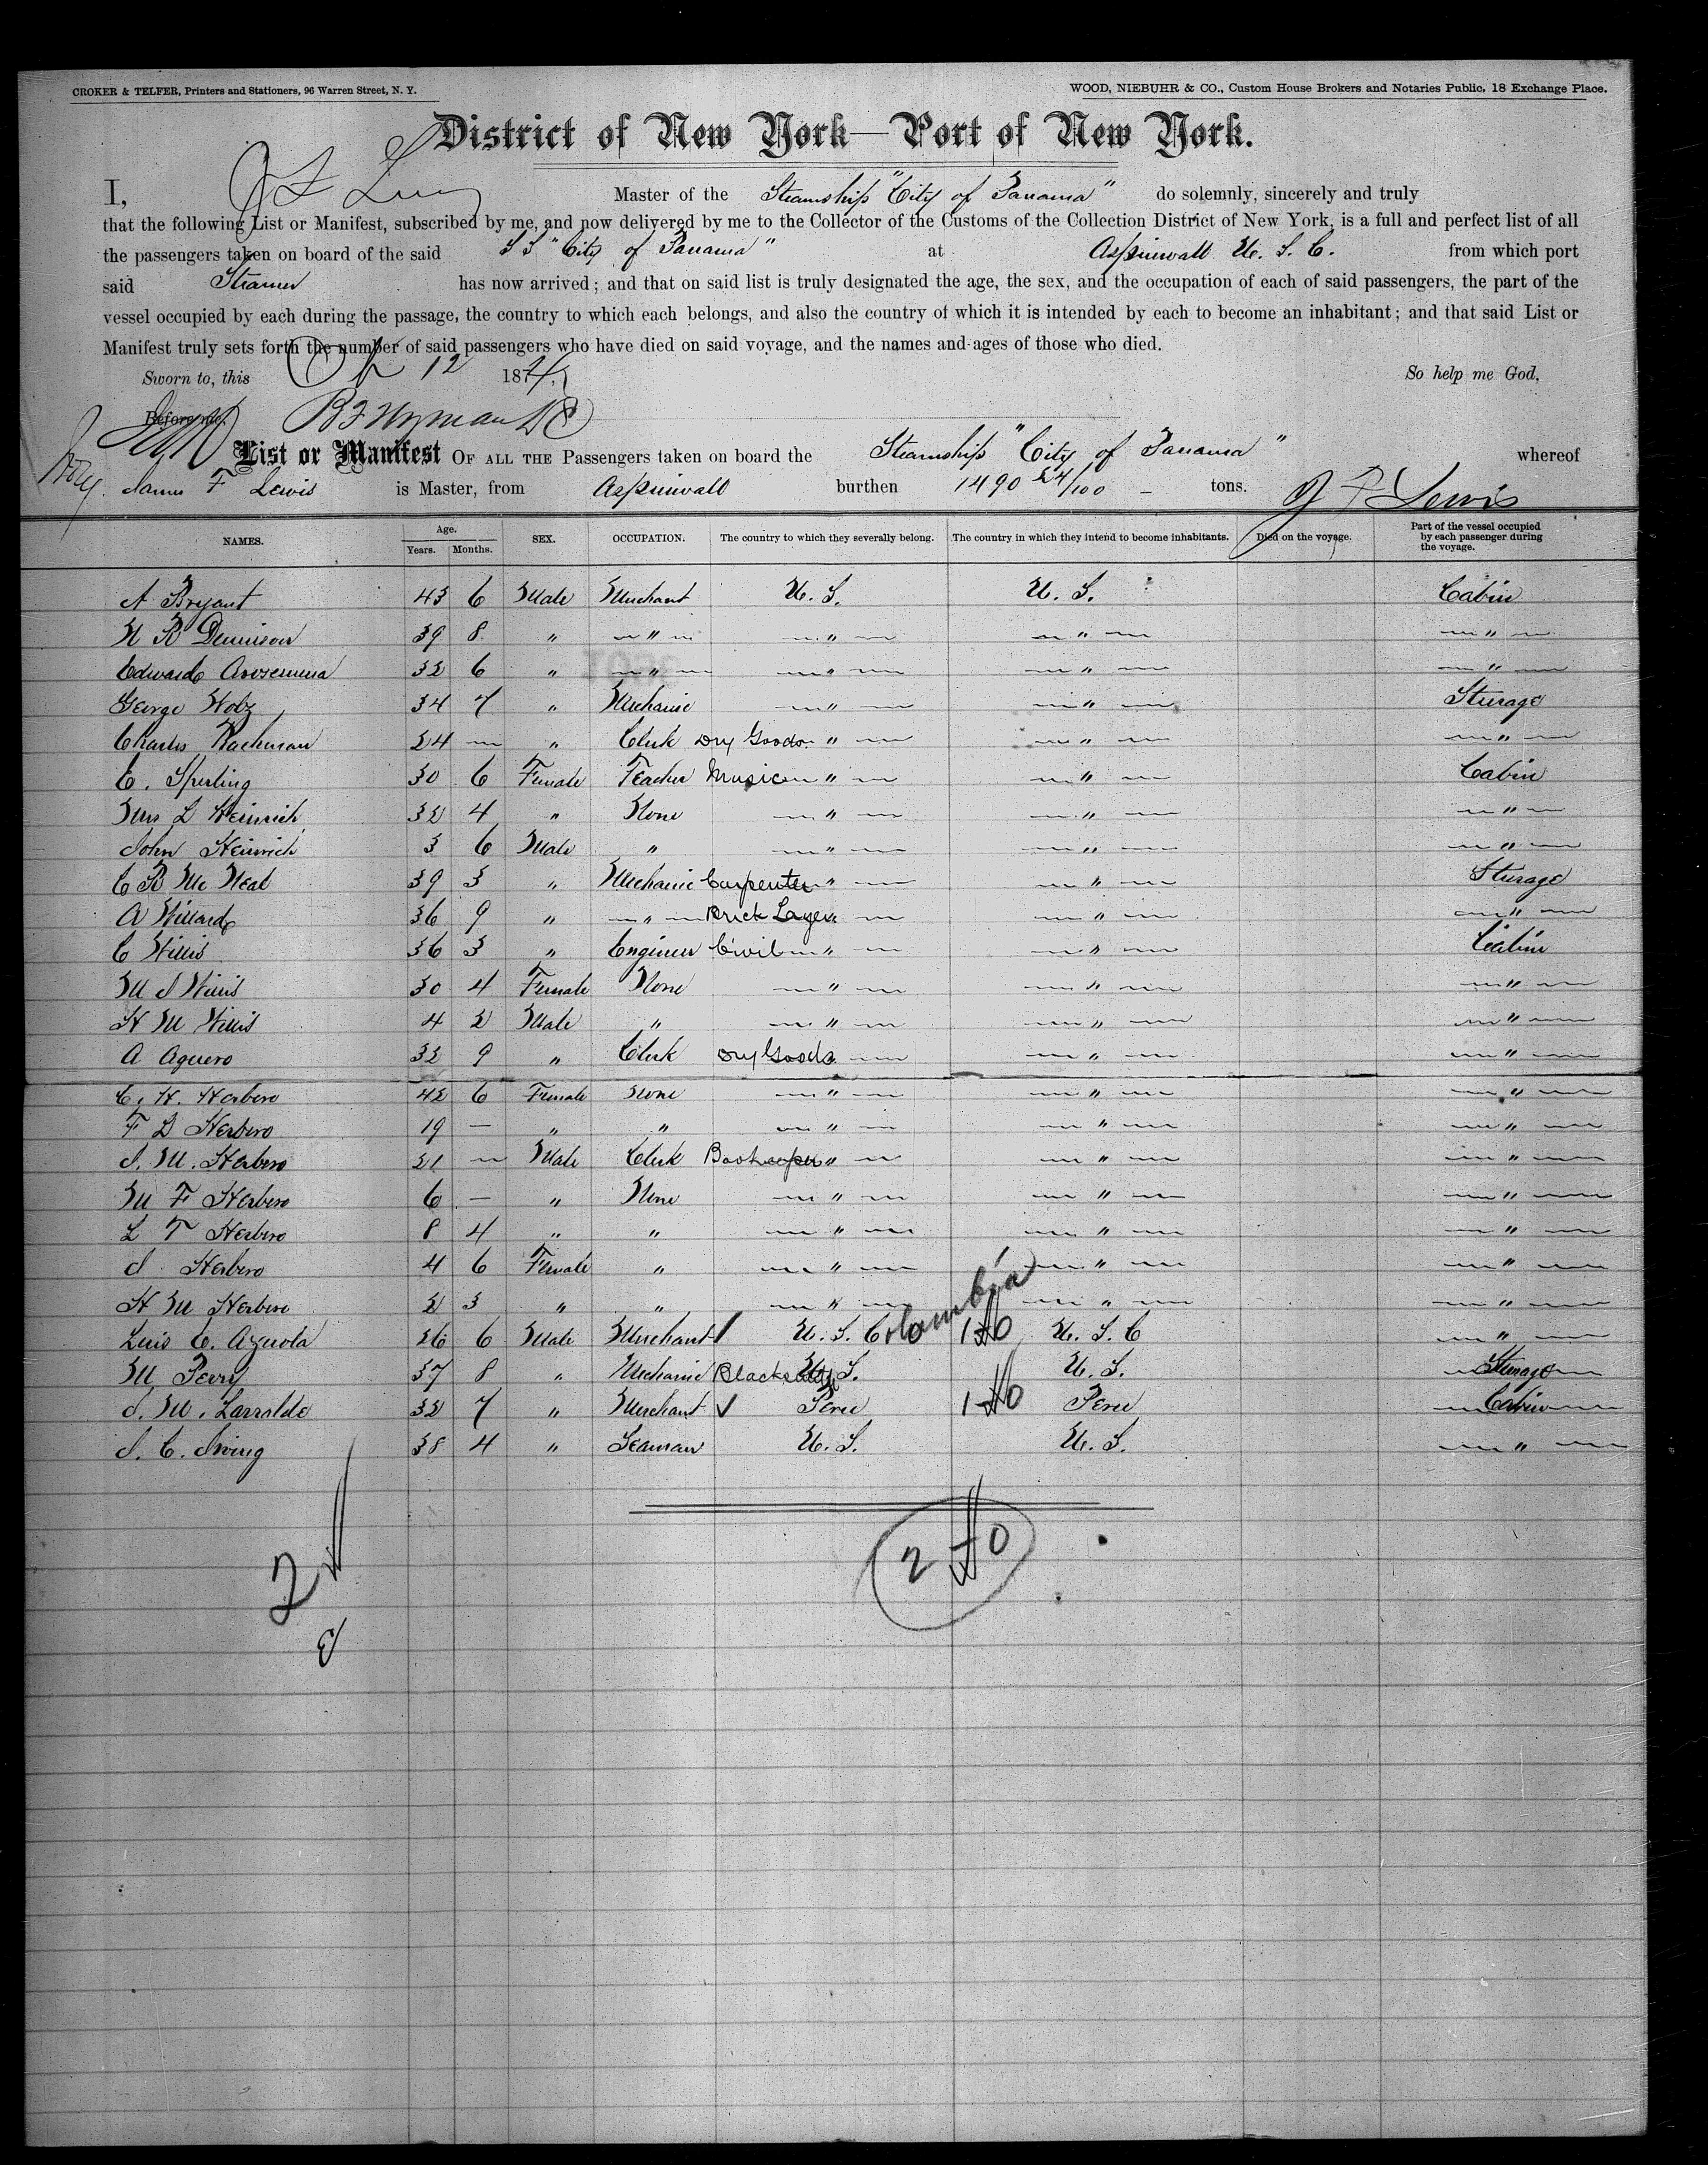 CROKER & TELFER, Printers and Stationers, 96 Warren Street, N. Y. WOOD, NIEBUHR & CO., Custom House Brokers and Notaries Public, 18 Exchange Place.
District of New York—Port of New York.
I, Master of the Steamship "City of Panama" do solemnly, sincerely and truly
that the following List or Manifest, subscribed by me, and now delivered by me to the Collector of the Customs of the Collection District of New York, is a full and perfect list of all
the passengers taken on board of the said S S "City of Panama" at Aspinwall U. S. C. from which port
said Steamer has now arrived; and that on said list is truly designated the age, the sex, and the occupation of each of said passengers, the part of the
vessel occupied by each during the passage, the country to which each belongs, and also the country of which it is intended by each to become an inhabitant; and that said List or
Manifest truly sets forth the number of said passengers who have died on said voyage, and the names and ages of those who died.
Sworn to, this 12 187 So help me God,
Before me,
List or Manifest OF ALL THE Passengers taken on board the Steamship "City of Panama" whereof
James F Lewis is Master, from Aspinwall burthen 1490 24/100 tons. J F Lewis
NAMES. Age. Years. Months. SEX. OCCUPATION. The country to which they severally belong. The country in which they intend to become inhabitants. Died on the voyage. Part of the vessel occupied by each passenger during the voyage.
A Bryant 43 6 Male Merchant U. S. U. S. Cabin
H R Dennison 39 8 " " " " "
Edward Arosemena 32 6 " " " " "
George Holz 34 7 " Mechanic " " Sturage
Charles Rachman 24 — " Clerk Dry Goods " " "
C. Sperling 30 6 Female Teacher Music " " Cabin
Mrs L Heinrich 32 4 " None " " "
John Heinrich 3 6 Male " " " "
C R Mc Neal 39 3 " Mechanic Carpenter " " Sturage
A Willard 36 9 " " Brick Layer " "
C Willis 36 3 " Engineer Civil " " Cabin
M J Willis 30 4 Female None " " "
H M Willis 4 2 Male " " " "
A Aguero 32 9 " Clerk Dry Goods " "
C. H. Herbero 42 6 Female None " " "
F D Herbero 19 — " " " " "
J. M. Herbero 21 — Male Clerk Bookeeper " " "
M F Herbero 6 — " None " " "
L T Herbero 8 4 " " " " "
J Herbero 4 6 Female " " " "
H M Herbero 2 3 " " " " "
Luis C. Azuola 26 6 Male Merchant U. S. Colombia 1 U. S. C "
M Perry 37 8 " Mechanic Blacksmith U. S. U. S. Sturage
J. M. Larralde 32 7 " Merchant Peru 1 Peru Cabin
J. C. Irving 38 4 " Seaman U. S. U. S. "
2
2